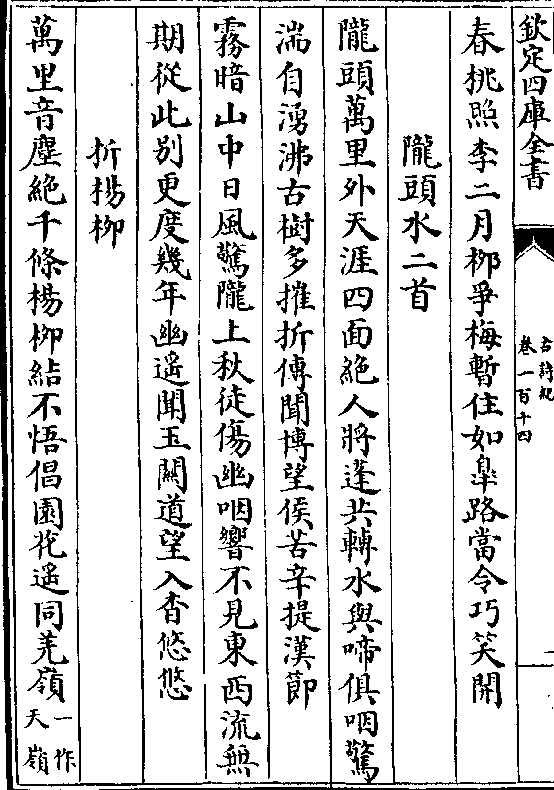 欽定四庫全書
古詩紀
卷一百十四
春桃照李二月柳爭梅暫住如臯路當令巧笑開
隴頭水二首
隴頭萬里外天涯四面絶人將蓬共轉水與啼俱咽驚
湍自湧沸古樹多摧折傳聞博望侯苦辛提漢節
霧暗山中日風驚隴上秋徒傷幽咽響不見東西流無
期從此别更度幾年幽遥聞玉關道望入杳悠悠
折楊柳
萬里音塵絶千條楊柳結不悟倡園花遥同羌嶺一作
天嶺